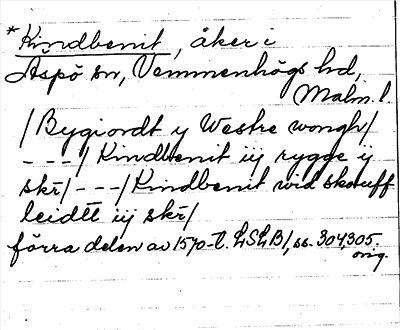 *Kindbenit, åker i
Äspö sn, Vemmenhögs hd,
Malm. l.
/Bygiordt y Westre wongh/
---/Kindbenit iij rygge ij
skr/---/Kindbenit wid skouff
leidtt iij skr/
förra delen av 1570-t. LSLB/, ss. 304, 305.
orig.